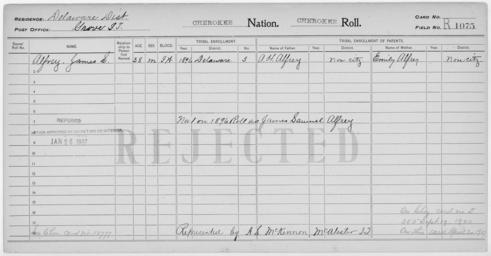 RESIDENCE: Delaware Dist.
POST OFFICE: Grove I.T.
CHEROKEE Nation. CHEROKEE Roll.
CARD No.
FIELD No. R 1075
Dawes' Roll No. NAME Relationship to Person first Named AGE SEX BLOOD TRIBAL ENROLLMENT TRIBAL ENROLLMENT OF PARENTS
Year District No. Name of Father Year District Name of Mother Year District
1 Alfrey, James S. 38 M I.W. 1896 Delaware A.H. Alfrey non city Emily Alfrey non city
No 1 on 1896 Roll as James Samuel Alfrey
REFUSED
JAN 26 1907
REJECTED
Represented by A.S. McKinnon, McAlester I.T.